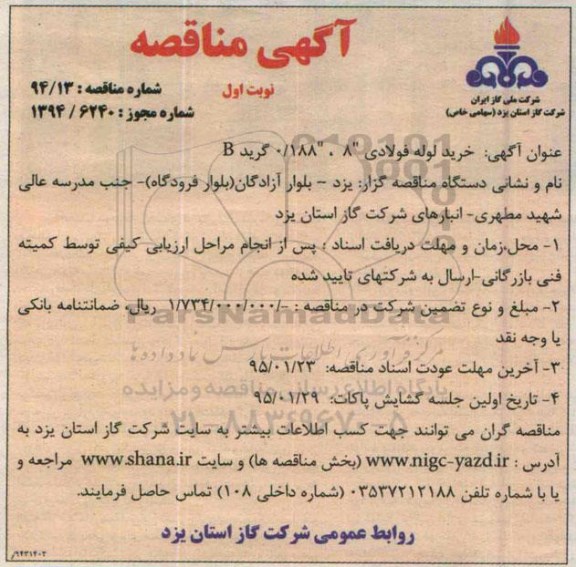 آگهی مناقصه
شرکت ملی گاز ایران
شرکت گاز استان یزد (سهامی خاص)
نوبت اول
شماره مناقصه : ۹۴/۱۳
شماره مجوز : ۶۲۴۰ / ۱۳۹۴
عنوان آگهی: خرید لوله فولادی "۸ ، "۰/۱۸۸ گرید B
نام و نشانی دستگاه مناقصه گزار: یزد – بلوار آزادگان(بلوار فرودگاه)- جنب مدرسه عالی
شهید مطهری- انبارهای شرکت گاز استان یزد
۱- محل،زمان و مهلت دریافت اسناد : پس از انجام مراحل ارزیابی کیفی توسط کمیته
فنی بازرگانی-ارسال به شرکتهای تایید شده
۲- مبلغ و نوع تضمین شرکت در مناقصه : -/۱/۷۳۴/۰۰۰/۰۰۰ ریال، ضمانتنامه بانکی
یا وجه نقد
ParsNamadData
مرکز فرآوری اطلاعات پارس نماد داده ها
۳- آخرین مهلت عودت اسناد مناقصه: ۹۵/۰۱/۲۳
پایگاه اطلاع رسانی مناقصه و مزایده
۴- تاریخ اولین جلسه گشایش پاکات: ۹۵/۰۱/۲۹
۰۲۱-۸۸۳۴۹۶۷۰-۵
مناقصه گران می توانند جهت کسب اطلاعات بیشتر به سایت شرکت گاز استان یزد به
آدرس : www.nigc-yazd.ir (بخش مناقصه ها) و سایت www.shana.ir مراجعه و
یا با شماره تلفن ۰۳۵۳۷۲۱۲۱۸۸ (شماره داخلی ۱۰۸) تماس حاصل فرمایند.
روابط عمومی شرکت گاز استان یزد
/۹۴۳۱۴۰۳